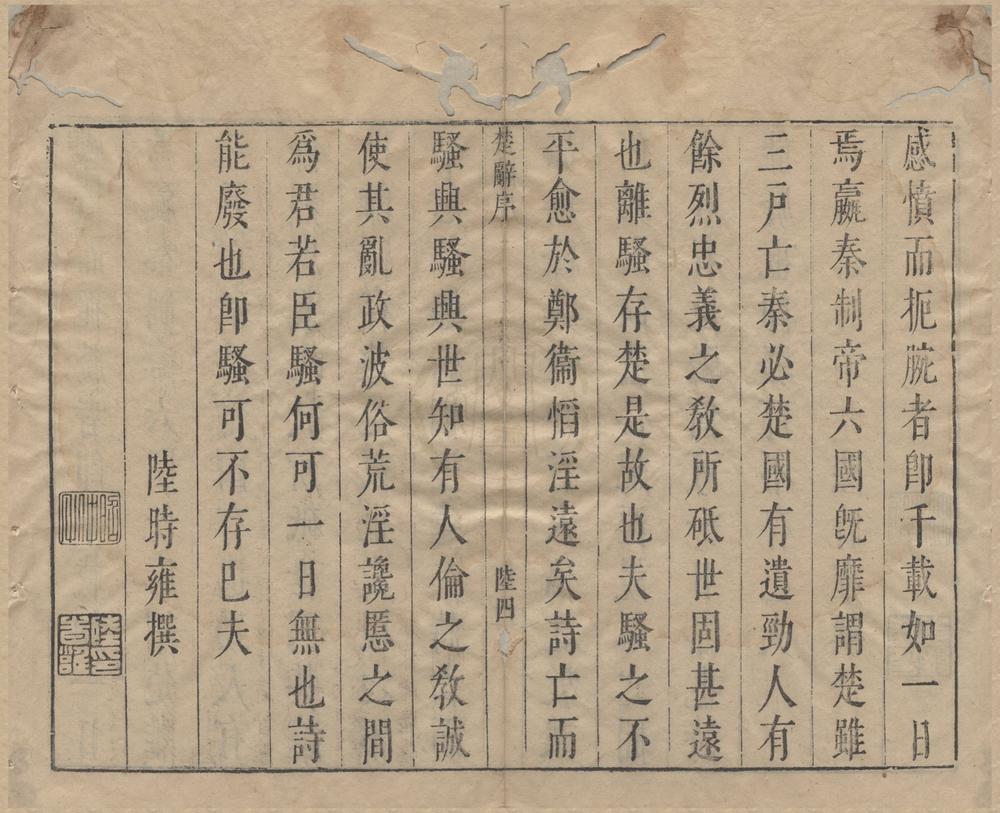 感憤而扼腕者卽千載如一日
焉嬴秦制帝六國旣靡謂楚雖
三戸亡秦必楚國有遺勁人有
餘烈忠義之敎所砥世固甚遠
也離騷存楚是故也夫騷之不
平愈於鄭衞慆淫遠矣詩亡而
楚辭序
陸四
騷興騷興世知有人倫之敎誠
使其亂政波俗荒淫讒慝之間
爲君若臣騷何可一日無也詩
能廢也卽騷可不存已夫
陸時雍撰
陸印時雍